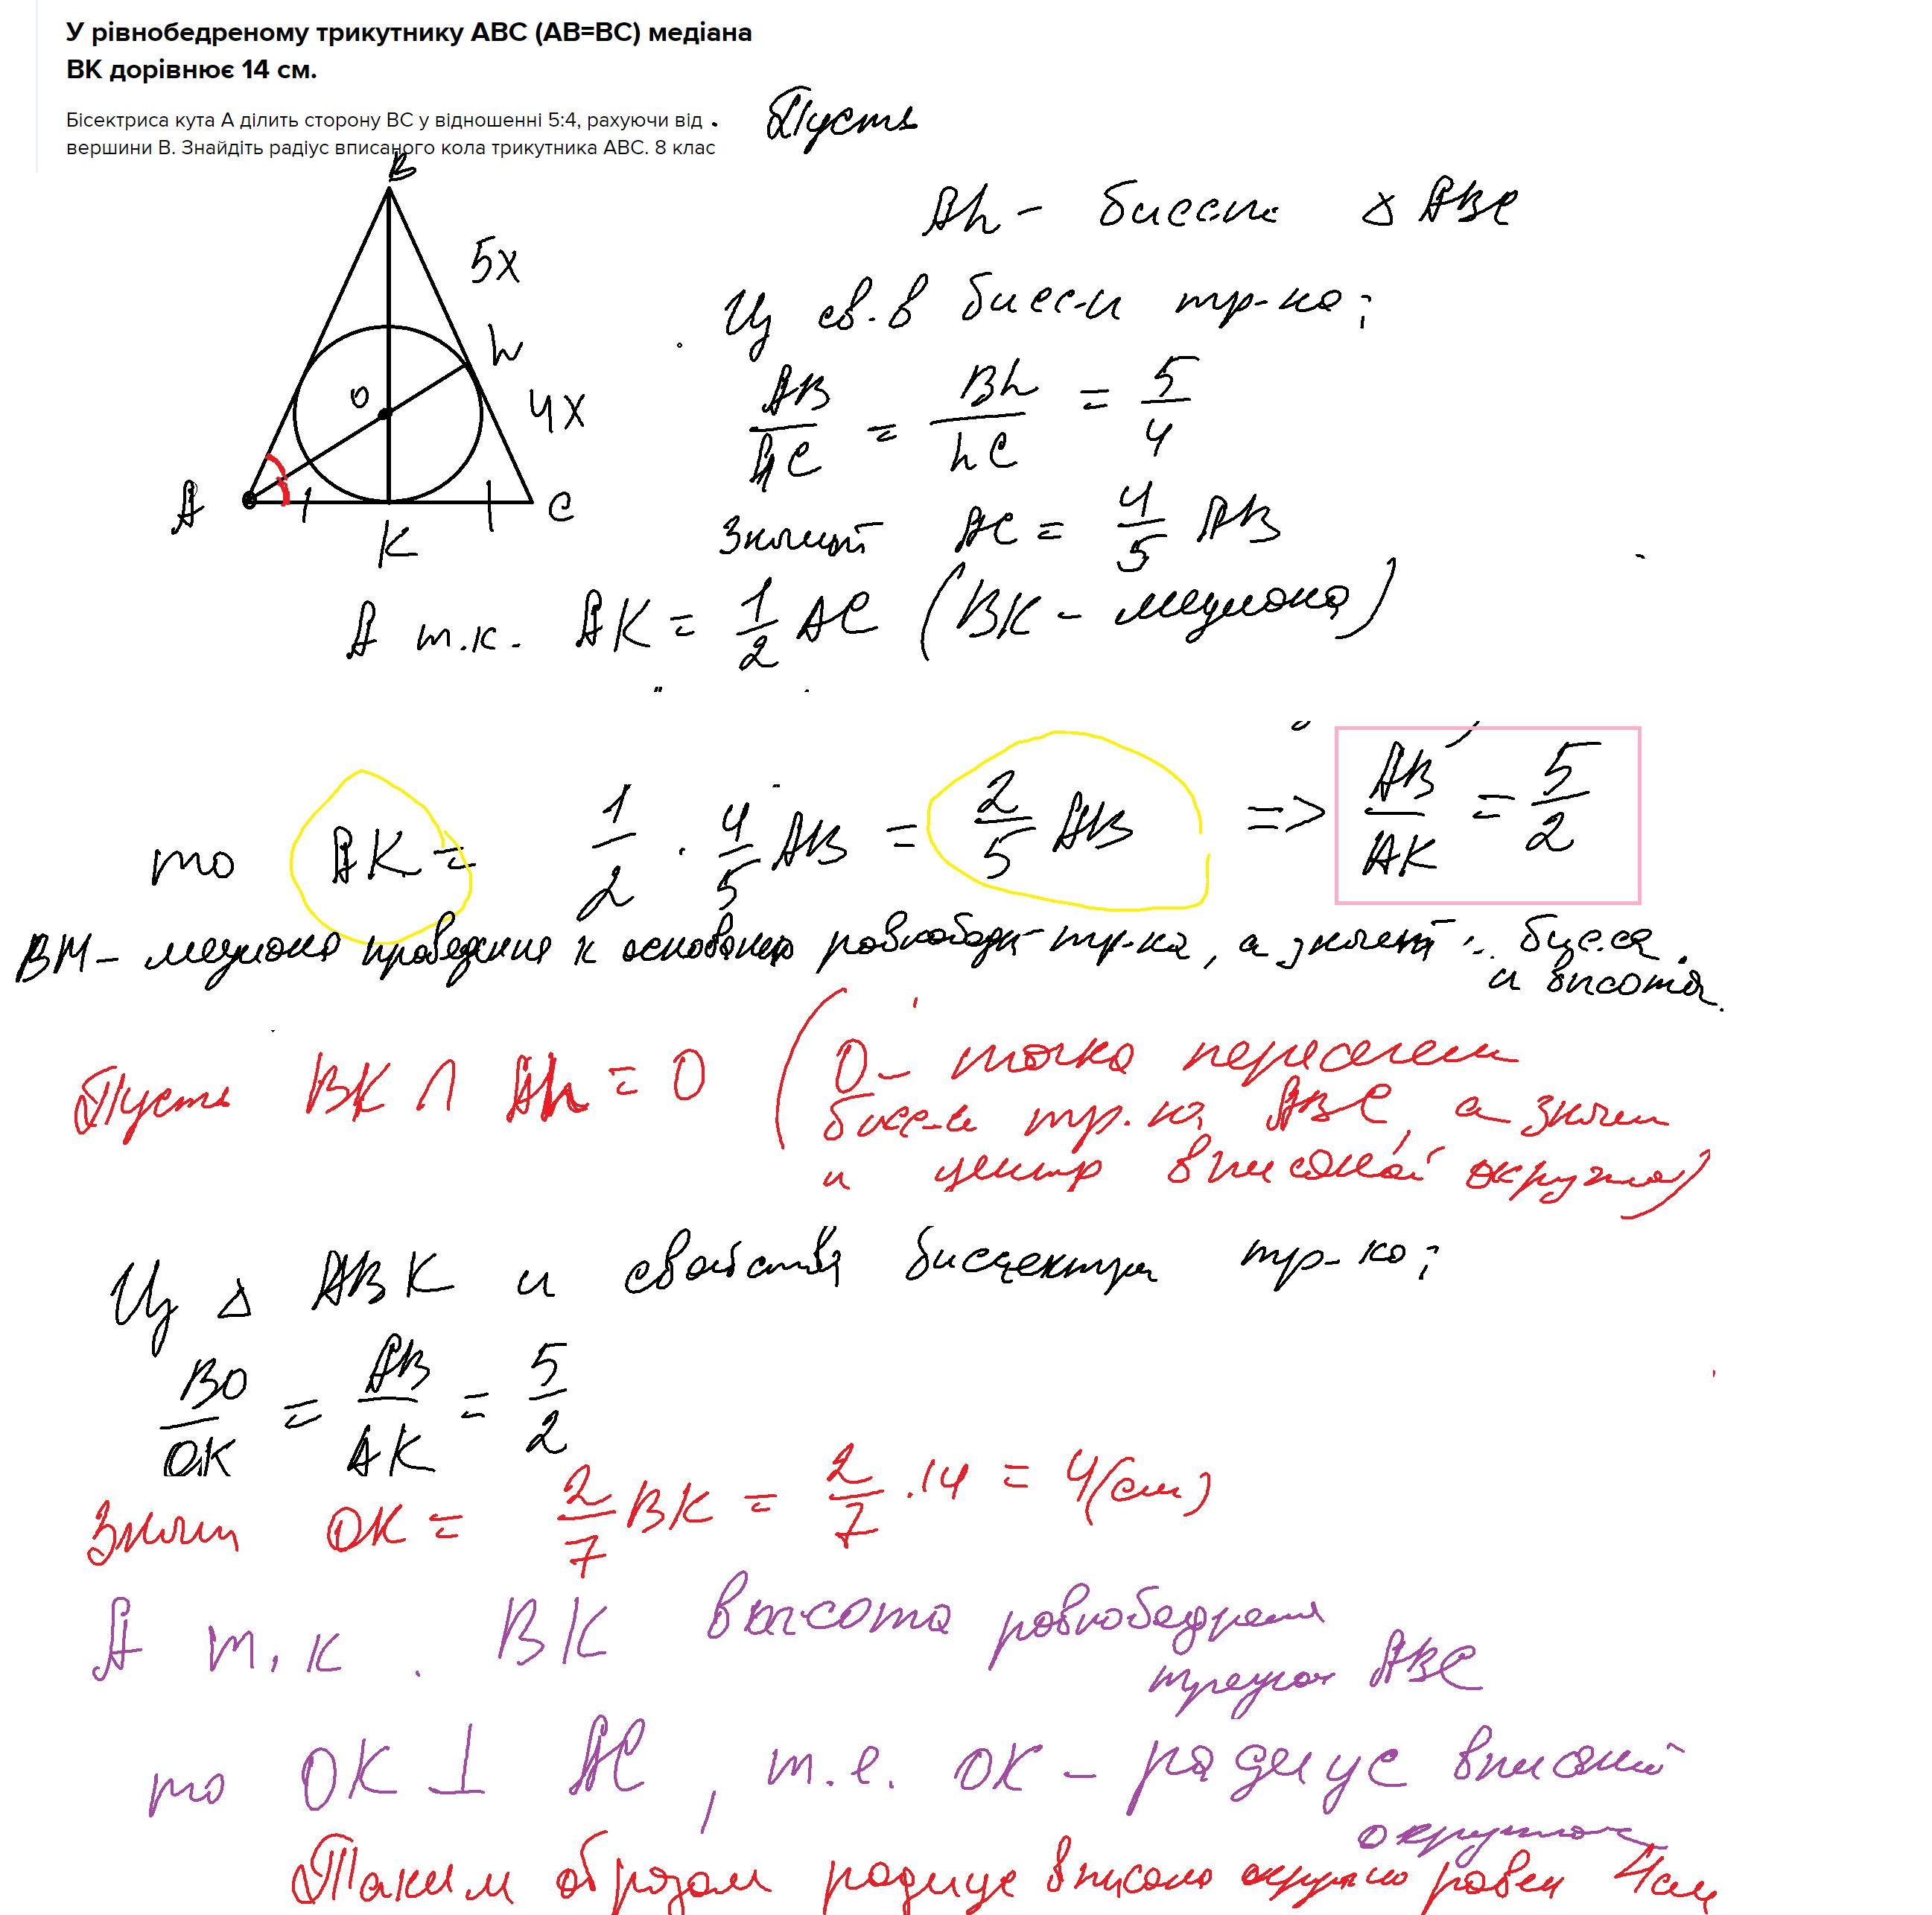 У рівнобедреному трикутнику ABC (AB=BC) медіана
BK дорівнює 14 см.
Бісектриса кута А ділить сторону ВС у відношенні 5:4, рахуючи від
вершини В. Знайдіть радіус вписаного кола трикутника АВС. 8 клас
Пусть
Ah - биссек Δ ABC
B
5x
h
4x
O
A
K
C
Из св-в бисс-и тр-ка:
AB/AC = Bh/hC = 5/4
Значит AC = 4/5 AB
А т.к. AK = 1/2 AC (BK - медиана)
то AK = 1/2 · 4/5 AB = 2/5 AB => AB/AK = 5/2
BM - медиана проведення к основанию равнобедр тр-ка, а значит бисс-са
и высота.
Пусть BK ∩ Ah = O (O - точка пересечен
бисс-и тр-ка ABC, а значи
и центр вписаной окружно)
Из Δ ABK и свойства биссектри тр-ка:
BO/OK = AB/AK = 5/2
Значит OK = 2/7 BK = 2/7 · 14 = 4(см)
А т.к. BK высота равнобедрен
треугол ABC
то OK ⊥ AC, т.е. OK - радиус вписаной
окружнос
Таким образом радиус вписано окружно равен 4см